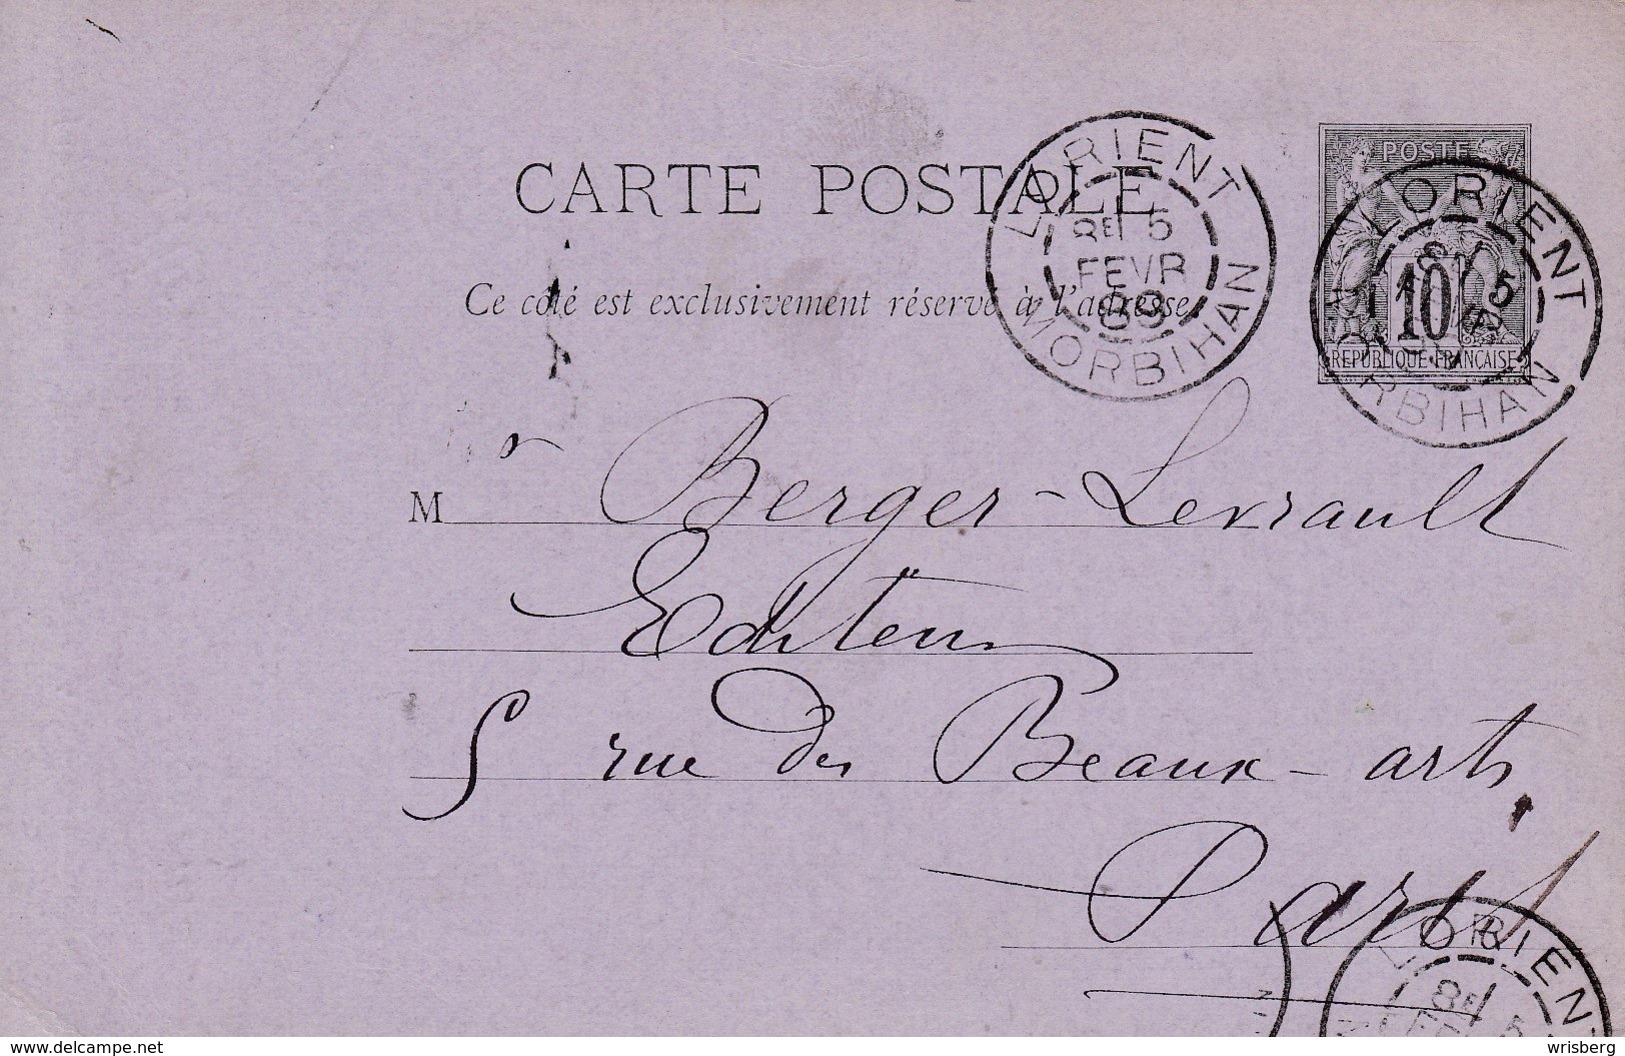 CARTE POSTALE
Ce côté est exclusivement réservé à l'adresse.
LORIENT
8E/ 5
FEVR
89
MORBIHAN
POSTE
10
REPUBLIQUE FRANÇAISE
LORIENT
5
MORBIHAN
M Berger-Levrault
Editeur
5 rue des Beaux-arts
Paris
LORIENT
8E/ 5
delcampe.net
wrisberg